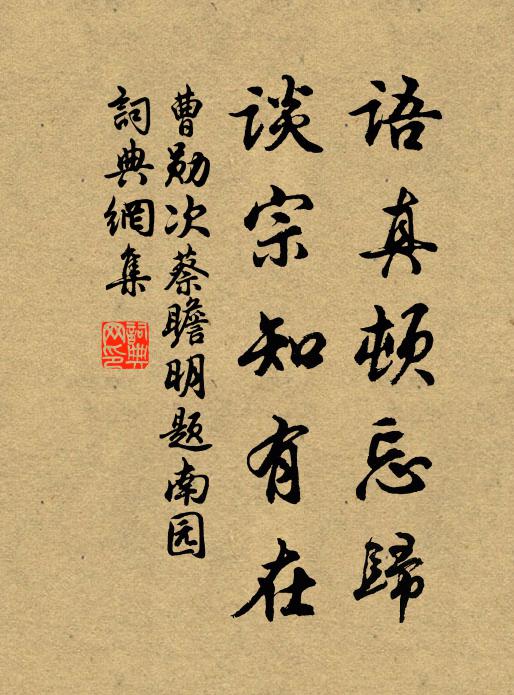 语真顿忘歸
谈宗知有在
曹勋次蔡瞻明题南园
詞典網集
詞典网印